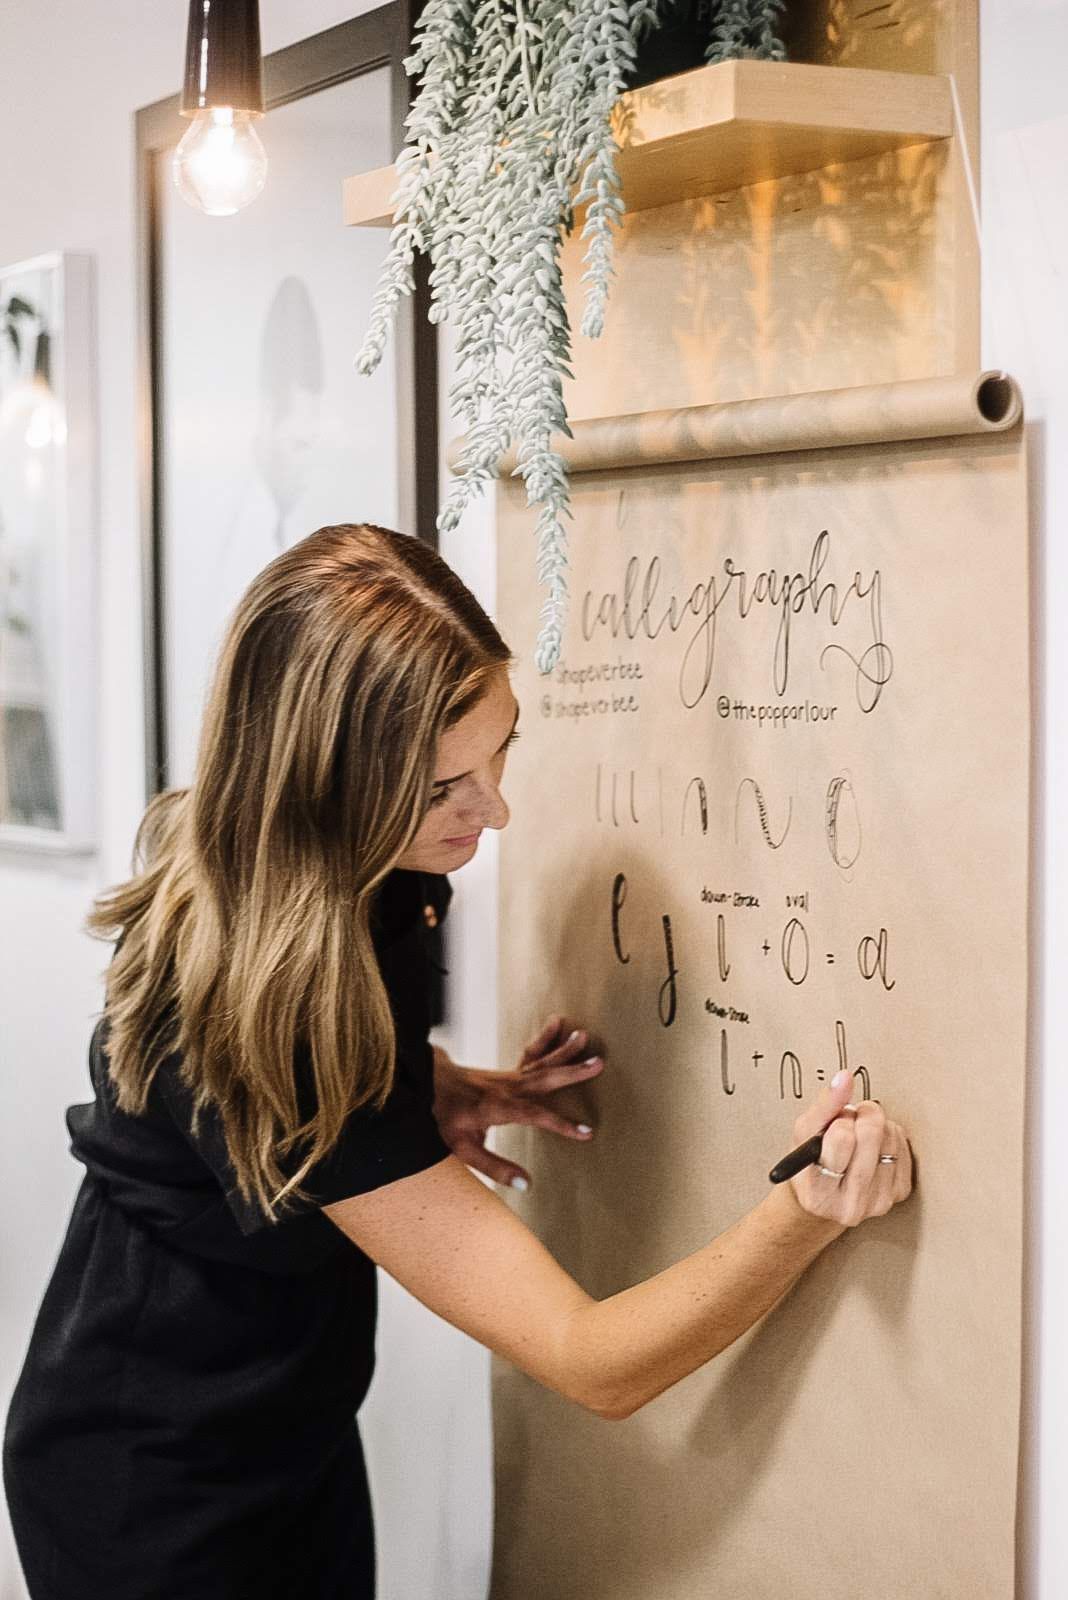 calligraphy
#Shopeverbee
@shopeverbee @thepopparlour
l l l
e j
down-stroke oval
l + o = a
down-stroke
l + n = h